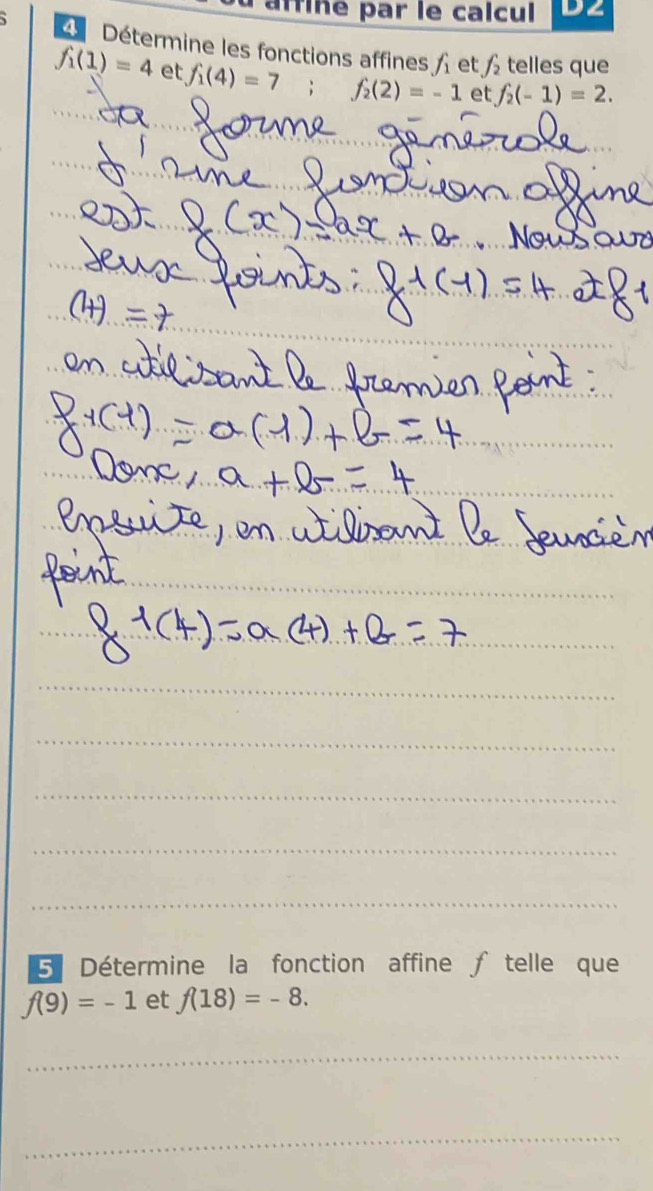 affine par le calcul D2
4 Détermine les fonctions affines f₁ et f₂ telles que
f₁(1) = 4 et f₁(4) = 7 ; f₂(2) = - 1 et f₂(- 1) = 2.
La forme générale
d'une fonction affine
est f(x) = ax + b. Nous avo
deux points : f1(1) = 4 et f1
(4) = 7
en utilisant le premier point :
f1(1) = a(1) + b = 4
Donc, a + b = 4
ensuite, en utilisant le deuxièm
point
f1(4) = a(4) + b = 7
5 Détermine la fonction affine f telle que
f(9) = - 1 et f(18) = - 8.